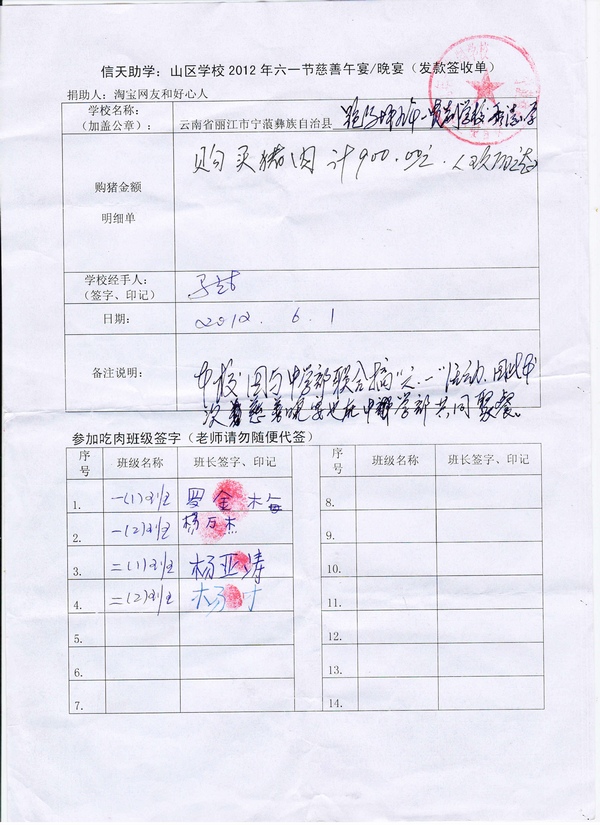 信天助学：山区学校2012年六一节慈善午宴/晚宴（发款签收单）
捐助人：淘宝网友和好心人
学校名称：
（加盖公章）：
云南省丽江市宁蒗彝族自治县
购猪金额
明细单
购买猪肉计900.00元.
学校经手人：
（签字、印记）
日期：
2012.6.1
备注说明：
中校因与中学部联合搞“六.一”活动.因此本
次慈善晚宴也在中学部共同聚餐。
参加吃肉班级签字（老师请勿随便代签）
序号 班级名称 班长签字、印记 序号 班级名称 班长签字、印记
1. 一(1)班 罗金梅 8.
2. 一(2)班 杨万杰 9.
3. 二(1)班 杨亚涛 10.
4. 二(2)班 杨 11.
5. 12.
6. 13.
7. 14.